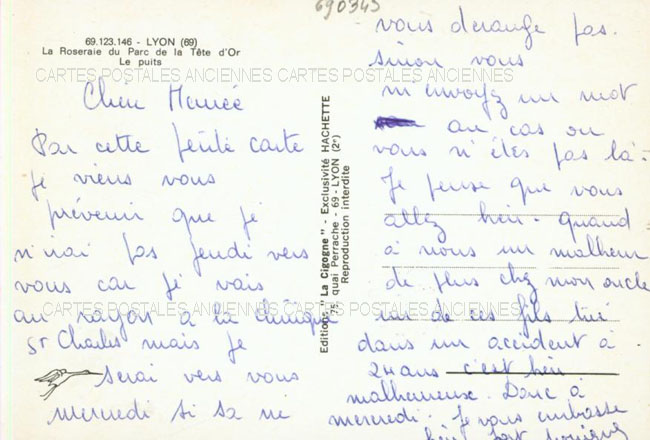 690345
69.123.146 - LYON (69)
La Roseraie du Parc de la Tête d'Or
Le puits
CARTES POSTALES ANCIENNES CARTES POSTALES ANCIENNES
Par cette petite carte
je viens vous
prévenir que je
n'irai pas jeudi vers
vous car je vais
au rayon à la clinique
St Charles mais je
serai vers vous
mercredi si sa ne
Editions "La Cigogne" - Exclusivité HACHETTE
75, quai Perrache - 69 - LYON (2e)
Reproduction interdite
vous derange pas.
sinon vous
m'envoyez un mot
au cas ou
vous n'étes pas là.
Je pense que vous
allez bien. quand
à nous un malheur
de plus chez mon oncle
un de ces fils tué
dans un accident à
24 ans c'est bien
malheureux. Donc à
mercredi. Je vous embrasse
bien fort
CARTES POSTALES ANCIENNES CARTES POSTALES ANCIENNES